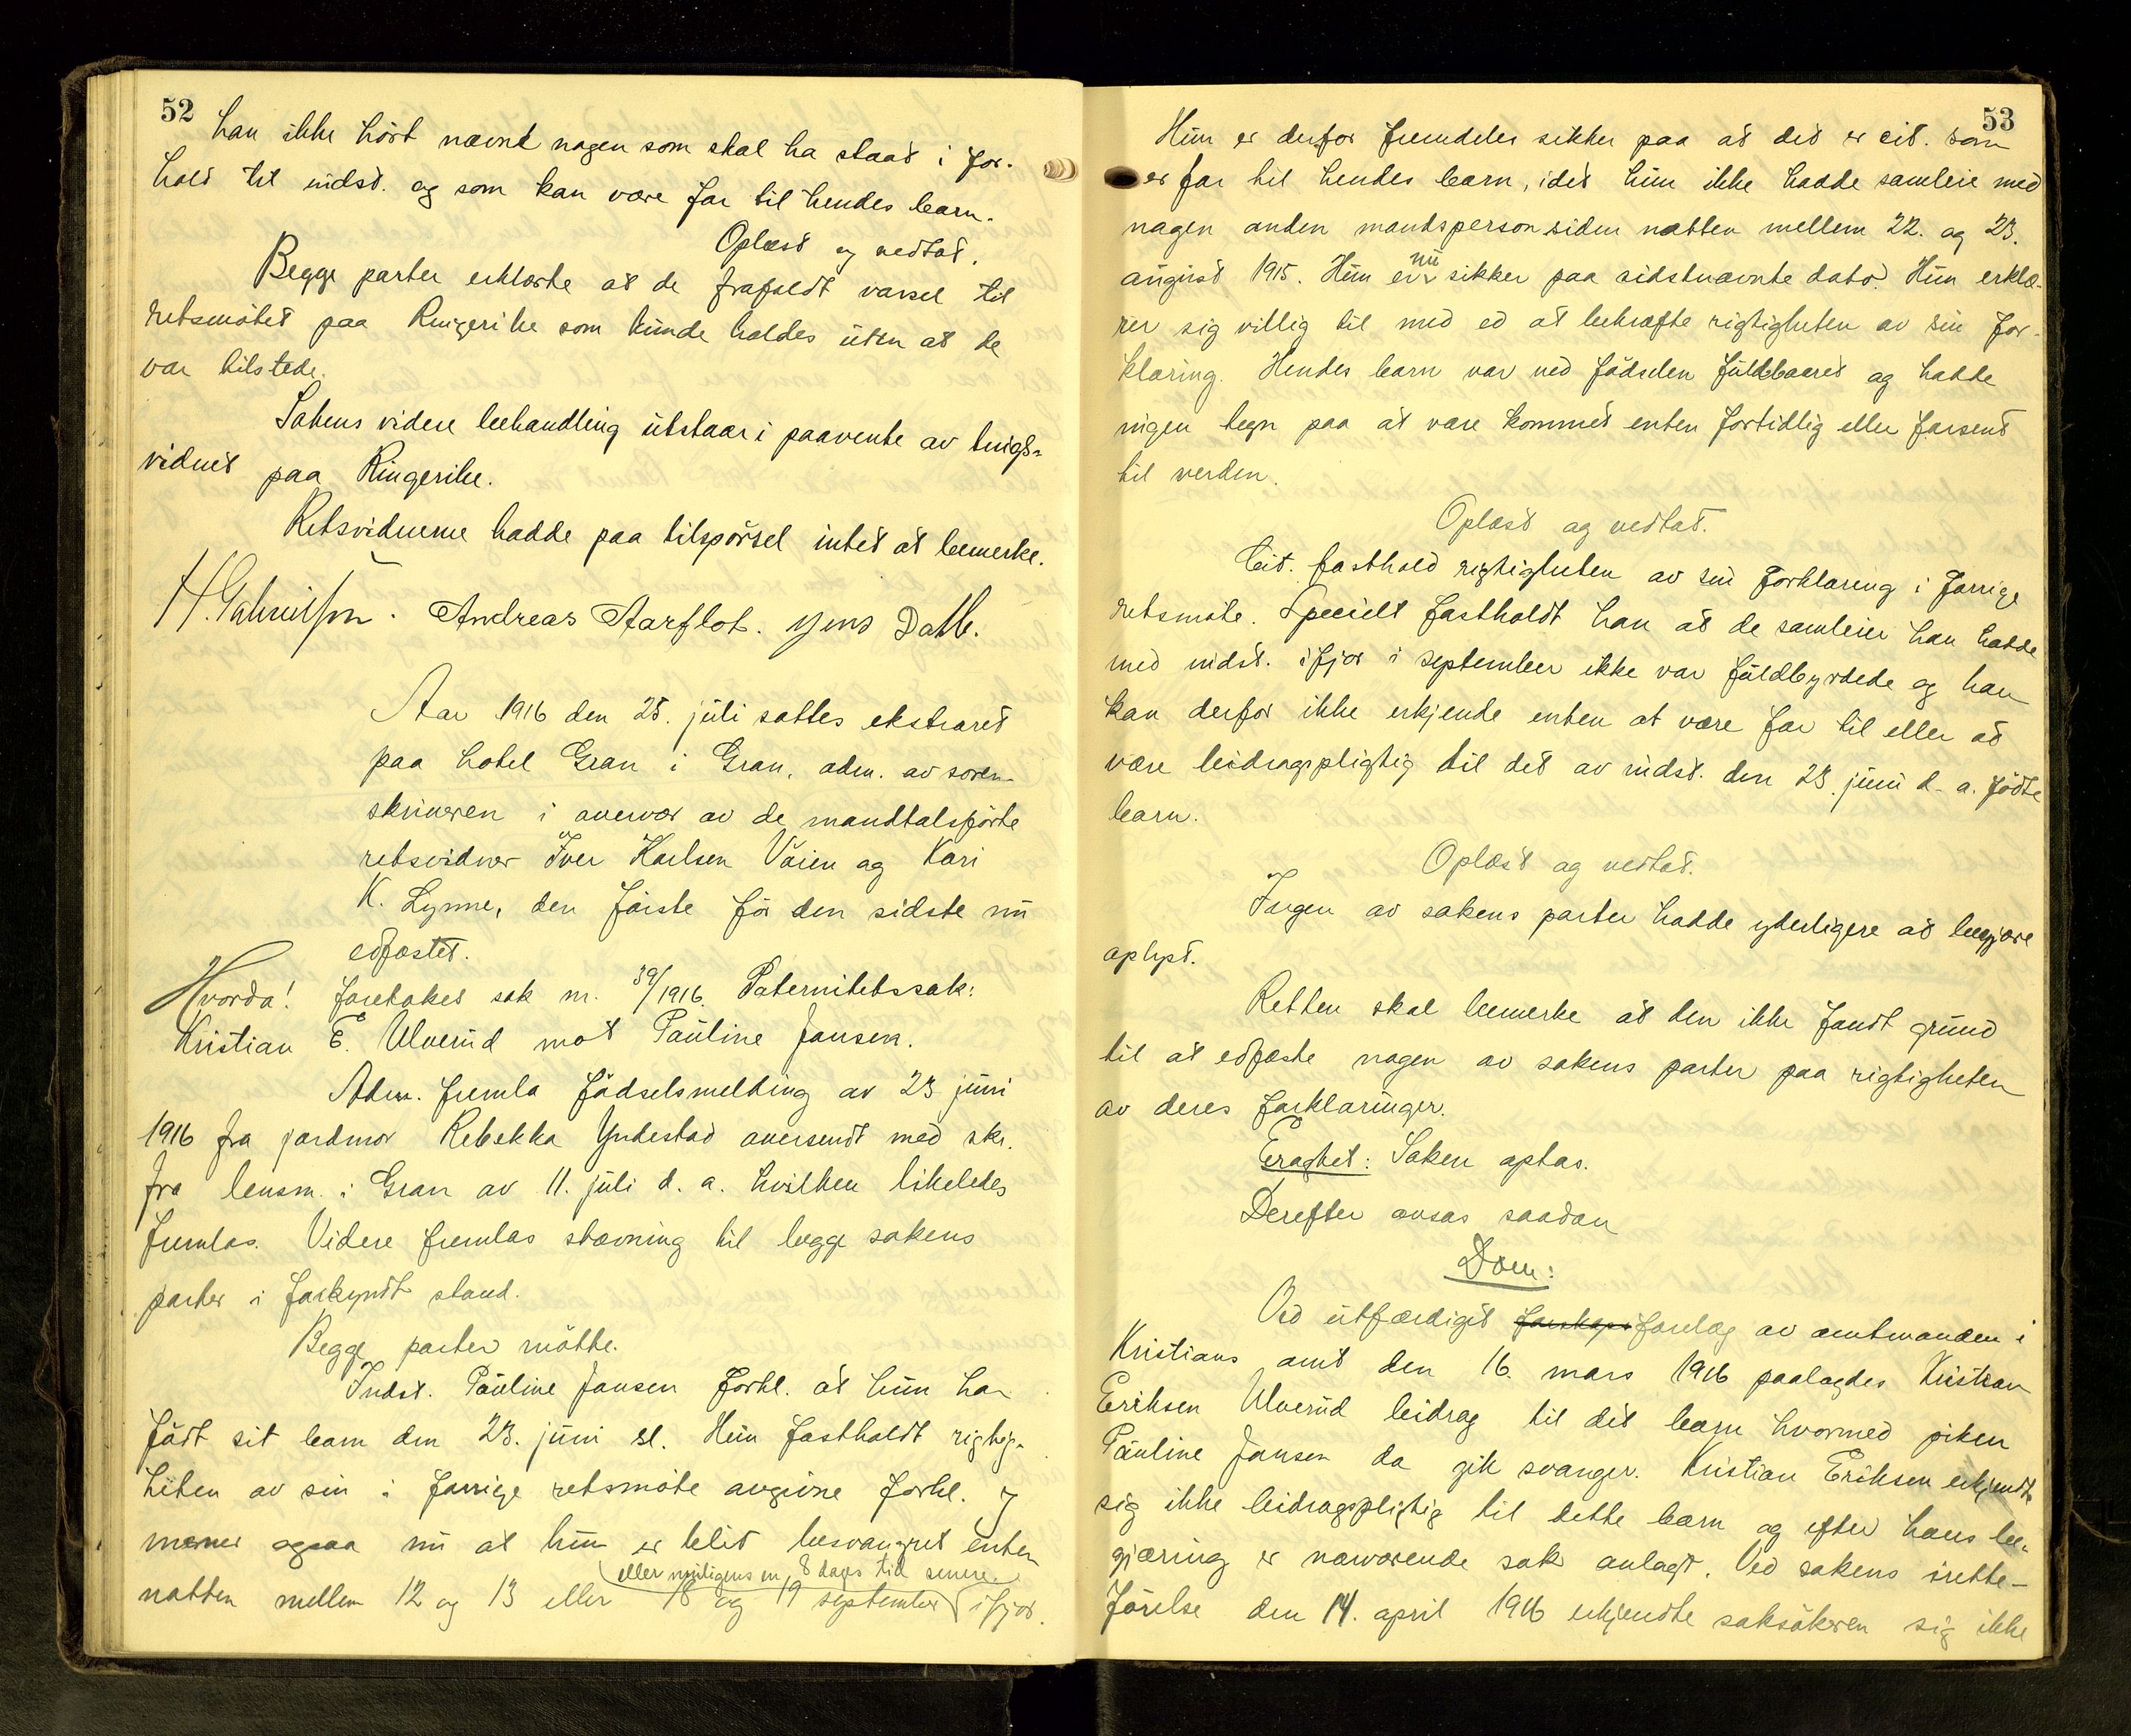 52
han ikke hört nævnt nogen som skal ha staat i for-
hold til indst. og som kan være far til hendes barn.
Oplæst og vedtat.
Begge parter erklærte at de frafaldt varsel til
retsmötet paa Ringerike som kunde holdes uten at de
var tilstede.
Sakens videre behandling utstaar i paavente av tings-
vidnet paa Ringerike.
Retsvidnerne hadde paa tilspörsel intet at bemerke.
Andreas Aarflot. Jens Dahl.
Aar 1916 den 25. juli sattes ekstraret
paa hotel Gran i Gran, adm. av soren-
skriveren i overvær av de mandtalsförte
retsvidner Iver Karlsen Vöien og Kari
K. Lynne, den förste för den sidste nu
edfæstet.
Hvorda! foretokes sak nr. 39/1916. Paternitetssak:
Kristian E. Ulverud mot Pauline Jansen.
Adm. fremla födselsmelding av 23 juni
1916 fra jordmor Rebekka Yndestad oversendt med skr.
fra lensm. i Gran av 11. juli d. a. hvilken likeledes
fremlas. Videre fremlas stævning til begge sakens
parter i forkyndt stand.
Begge parter mötte.
Indst. Pauline Jansen forkl. at hun har
födt sit barn den 23. juni sl. Hun fastholdt rigtig-
heten av sin i forrige retsmöte avgivne forkl. og
mener ogsaa nu at hun er blit besvangret enten
eller muligens en 8 dages tid senere
natten mellem 12 og 13 eller 18 og 19 september ifjor.
53
Hun er derfor fremdeles sikker paa at det er cit. som
er far til hendes barn, idet hun ikke hadde samleie med
nogen anden mandsperson siden natten mellem 22. og 23.
nu
august 1915. Hun er sikker paa sidstnævnte dato. Hun erklæ-
rer sig villig til med ed at bekræfte rigtigheten av sin for-
klaring. Hendes barn var ved födselen fuldbaaret og hadde
ingen tegn paa at være kommet enten fortidlig eller forsent
til verden.
Oplæst og vedtat.
Cit. fasthold rigtigheten av sin forklaring i forrige
retsmöte. Specielt fastholdt han at de samleier han hadde
med indst. ifjor i september ikke var fuldbyrdede og han
kan derfor ikke erkjende enten at være far til eller at
være bidragspligtig til det av indst. den 23. juni d. a. födte
barn.
Oplæst og vedtat.
Ingen av sakens parter hadde yderligere at begjære
oplyst.
Retten skal bemerke at den ikke fandt grund
til at edfæste nogen av sakens parter paa rigtigheten
av deres forklaringer.
Eragtet: Saken optas.
Derefter avsas saadan
Dom:
Ved utfærdiget forelæg av amtmanden i
Kristians amt den 16. mars 1916 paalagdes Kristian
Eriksen Ulverud bidrag til det barn hvormed piken
Pauline Jansen da gik svanger. Kristian Eriksen erkjendte
sig ikke bidragspligtig til dette barn og efter hans be-
gjæring er nærværende sak anlagt. Ved sakens irette-
förelse den 14. april 1916 erkjendte saksökeren sig ikke